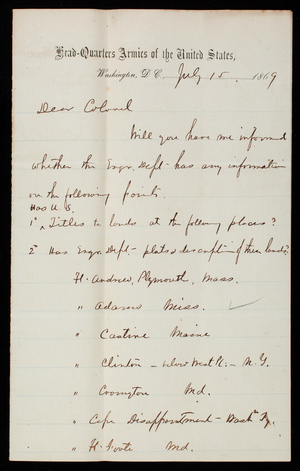 Head-Quarters Armies of the United States,
Washington, D.C. July 15. 1869
Dear Colonel
Will you have me informed
whether the Engr. Dept. has any information
on the following points.
Has U.S.
1st Titles to lands at the following places?
2d Has Engr. Dept. plats & description of these lands?
Ft. Andrew, Plymouth, Mass.
" Adams Miss.
" Castine Maine
" Clinton – below West Pt. – N.Y.
" Covington Md.
" Cape Disappointment – Washn Ty.
" Ft. Foote Md.